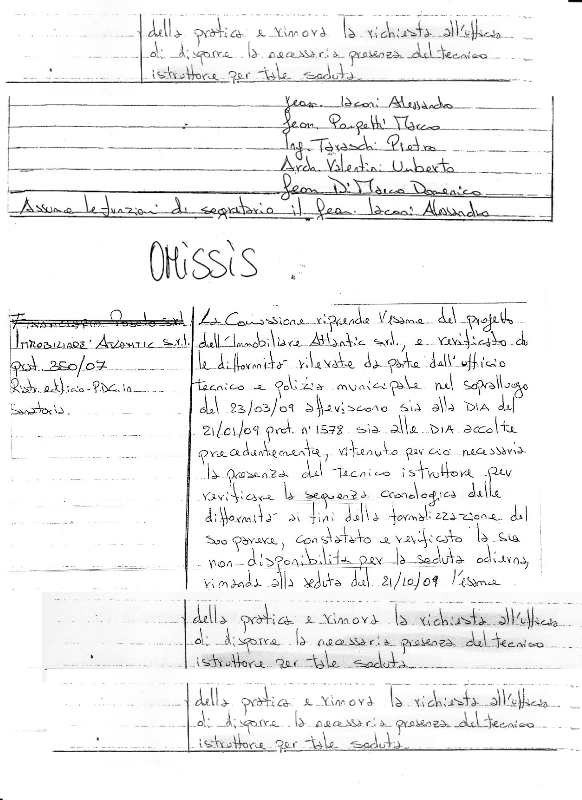 della pratica e rinnova la richiesta all'ufficio
di disporre la necessaria presenza del tecnico
istruttore per tale seduta
Geom. Iaconi Alessandro
Geom. Pompetti Marco
Ing. Taraschi Pietro
Arch. Valentini Umberto
Geom. Di Marco Domenico
Assume le funzioni di segretario il Geom. Iaconi Alessandro
OMISSIS
Immobiliare Atlantic s.r.l.
prot. 350/07
Ristr. edificio - P.D.C. in
Sanatoria.
La Commissione riprende l'esame del progetto
dell'Immobiliare Atlantic srl., e verificato che
le difformità rilevate da parte dell'ufficio
tecnico e polizia municipale nel sopralluogo
del 23/03/09 afferiscono sia alla DIA del
21/01/09 prot. n° 1578 sia alle DIA accolte
precedentemente, ritenuto perciò necessaria
la presenza del tecnico istruttore per
verificare la sequenza cronologica delle
difformità ai fini della formalizzazione del
suo parere, constatato e verificato la sua
non disponibilità per la seduta odierna,
rimanda alla seduta del 21/10/09 l'esame
della pratica e rinnova la richiesta all'ufficio
di disporre la necessaria presenza del tecnico
istruttore per tale seduta
della pratica e rinnova la richiesta all'ufficio
di disporre la necessaria presenza del tecnico
istruttore per tale seduta